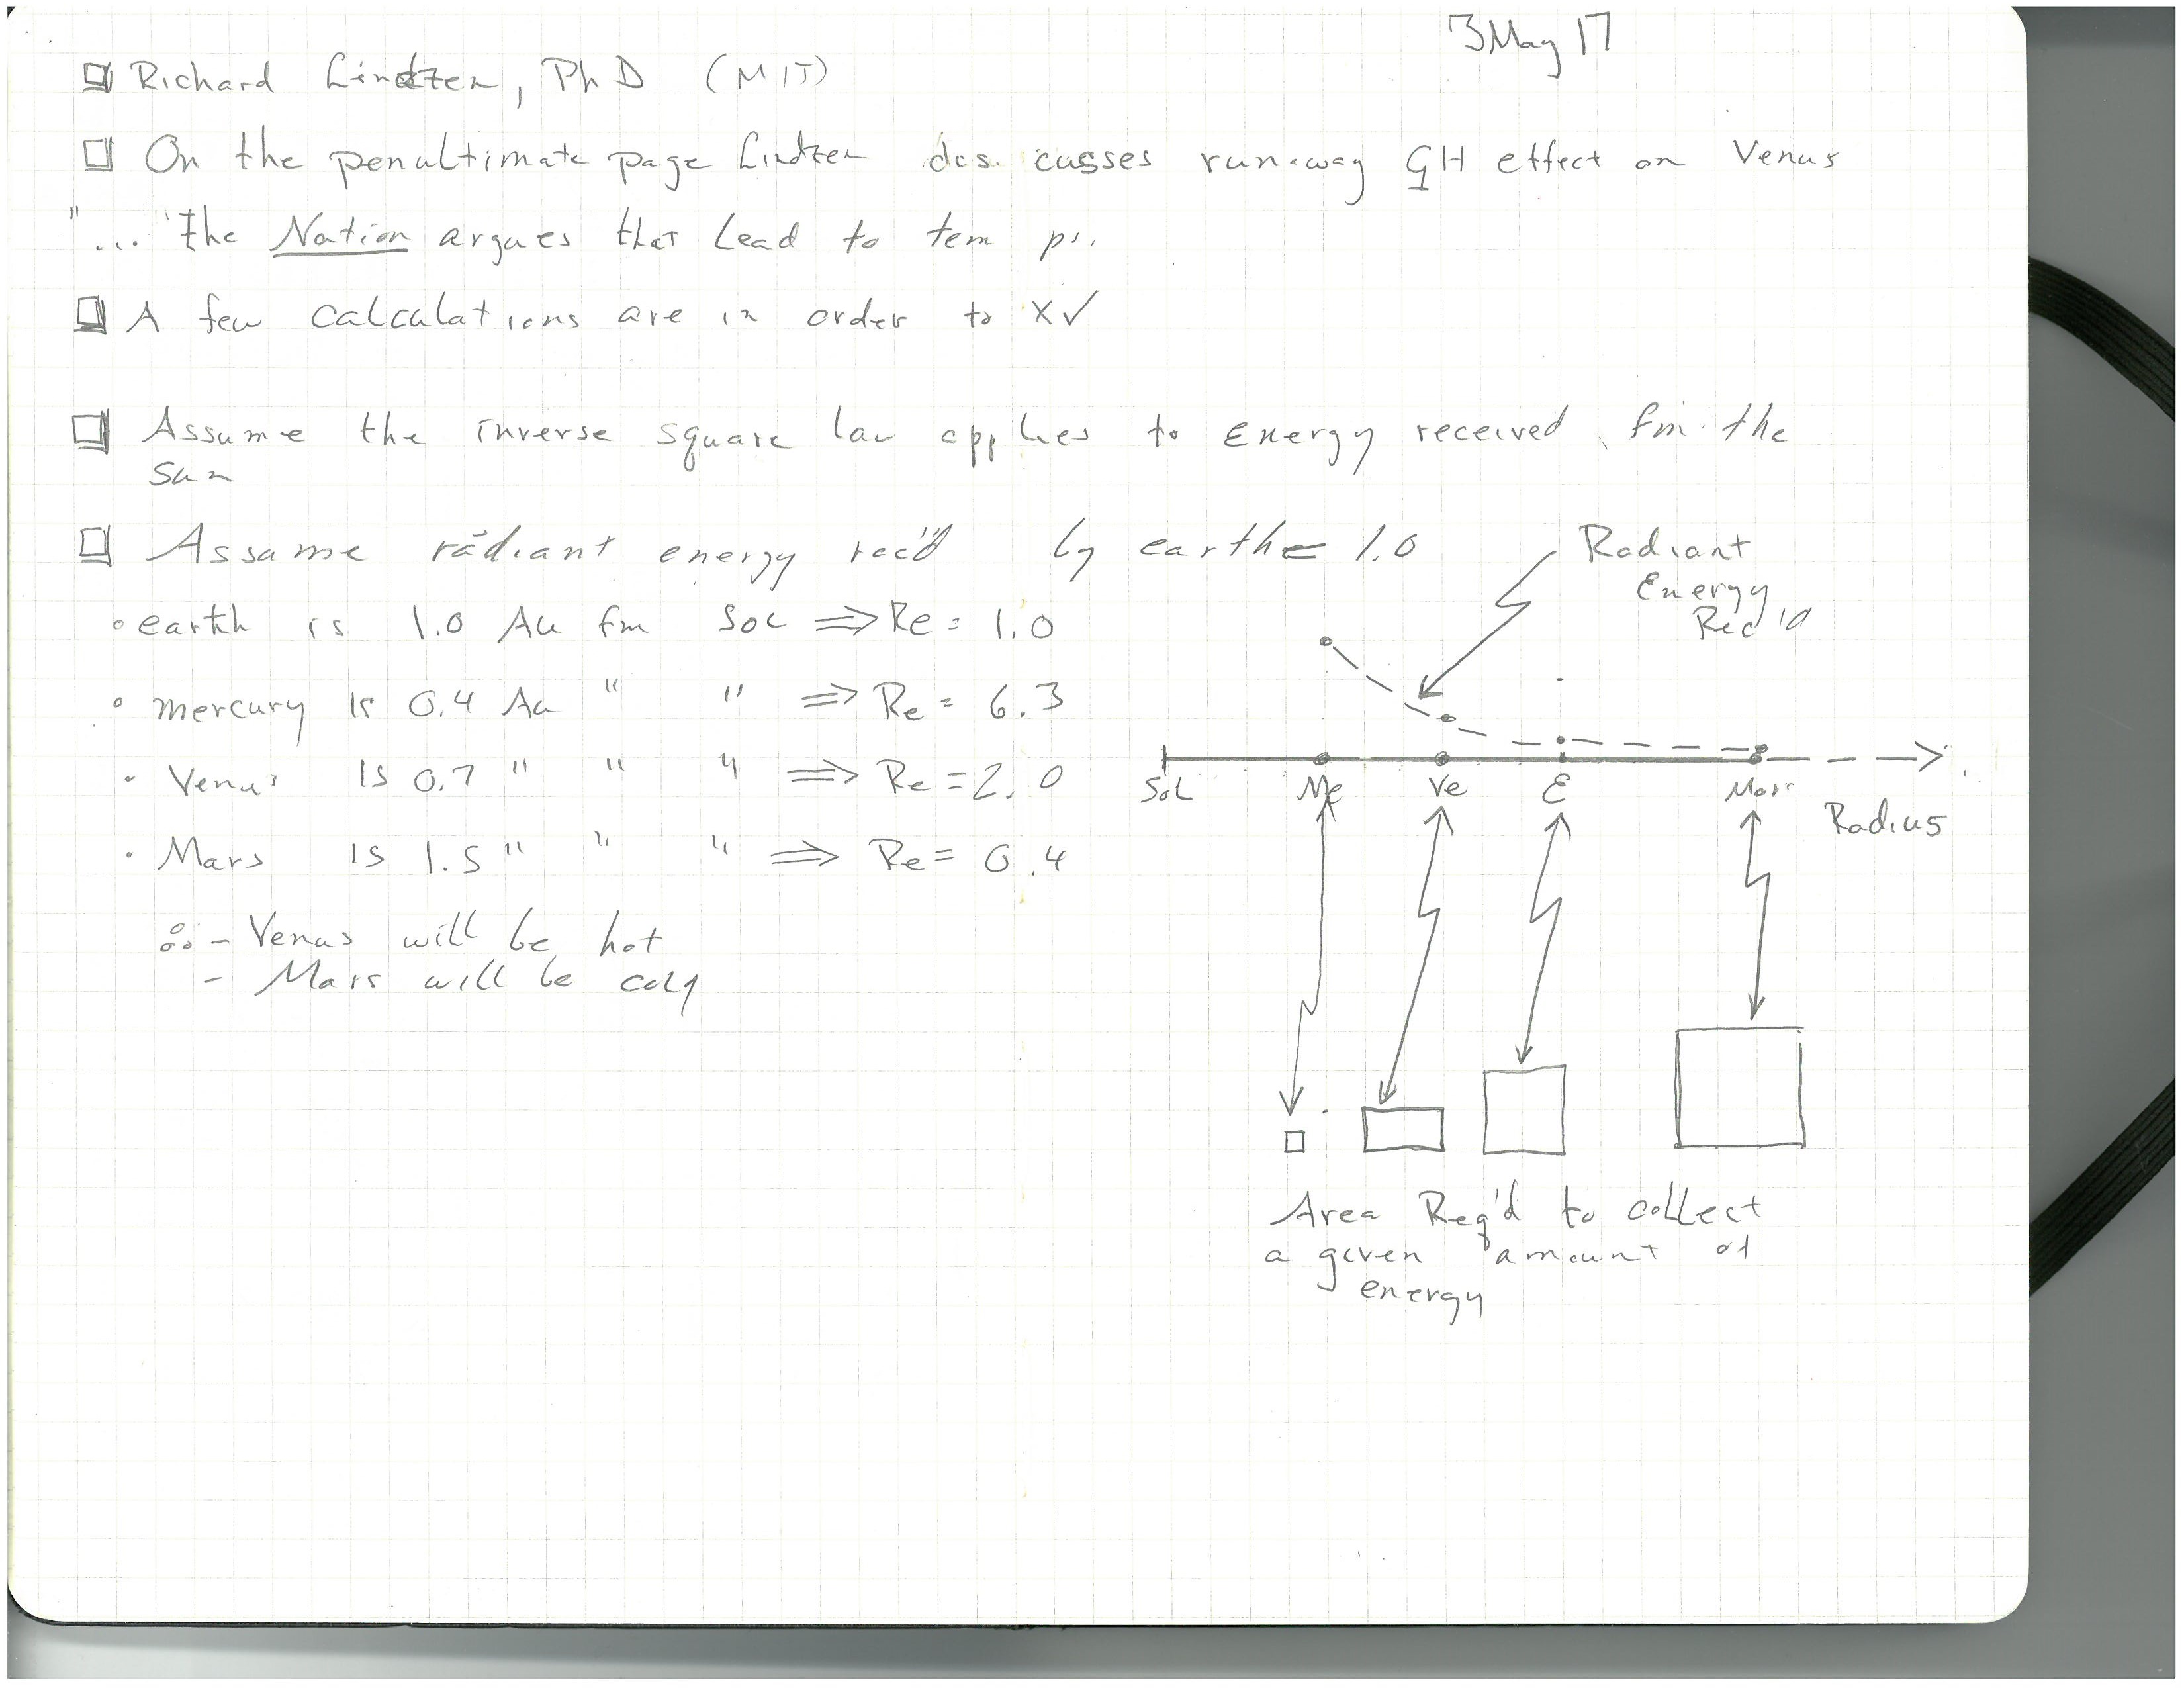 3 May 17
Richard Lindzen, PhD (MIT)
On the penultimate page Lindzen discusses runaway GH effect on Venus
"... the Nation argues that lead to temps.
A few calculations are in order to X✓
Assume the inverse square law applies to Energy received fm the
Sun
Assume radiant energy rec'd by earth = 1.0
• earth is 1.0 Au fm Sol ⇒ Re = 1.0
• mercury is 0.4 Au " " ⇒ Re = 6.3
• Venus is 0.7 " " " ⇒ Re = 2.0
• Mars is 1.5 " " " ⇒ Re = 0.4
∴ - Venus will be hot
- Mars will be cold
Radiant
Energy
Rec'd
Sol Me Ve E Mars
Radius
Area Req'd to collect
a given amount of
energy